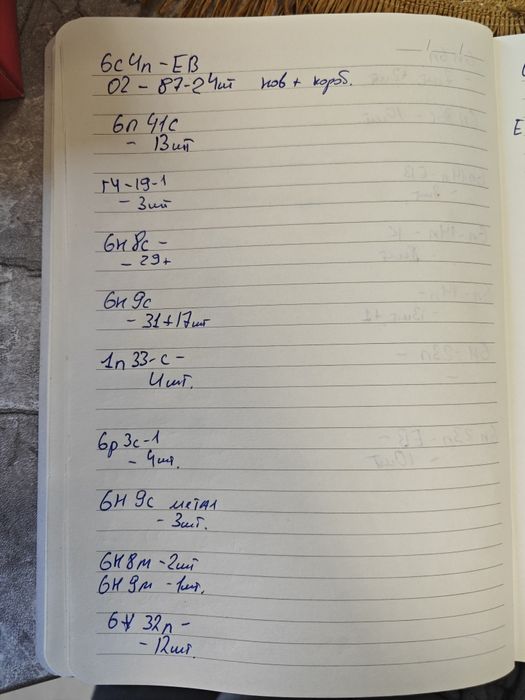 6с4п-ЕВ
02-87-24шт нов + короб.
6п 41с
- 13шт
ГУ-19-1
- 3шт
6Н8с -
- 29+
6Н9с
- 31+17шт
1п33-с-
4шт.
6р3с-1
- 4шт.
6Н9с метал
- 3шт.
6Н8м -2шт
6Н9м -1шт.
32п -
- 12шт.
Е